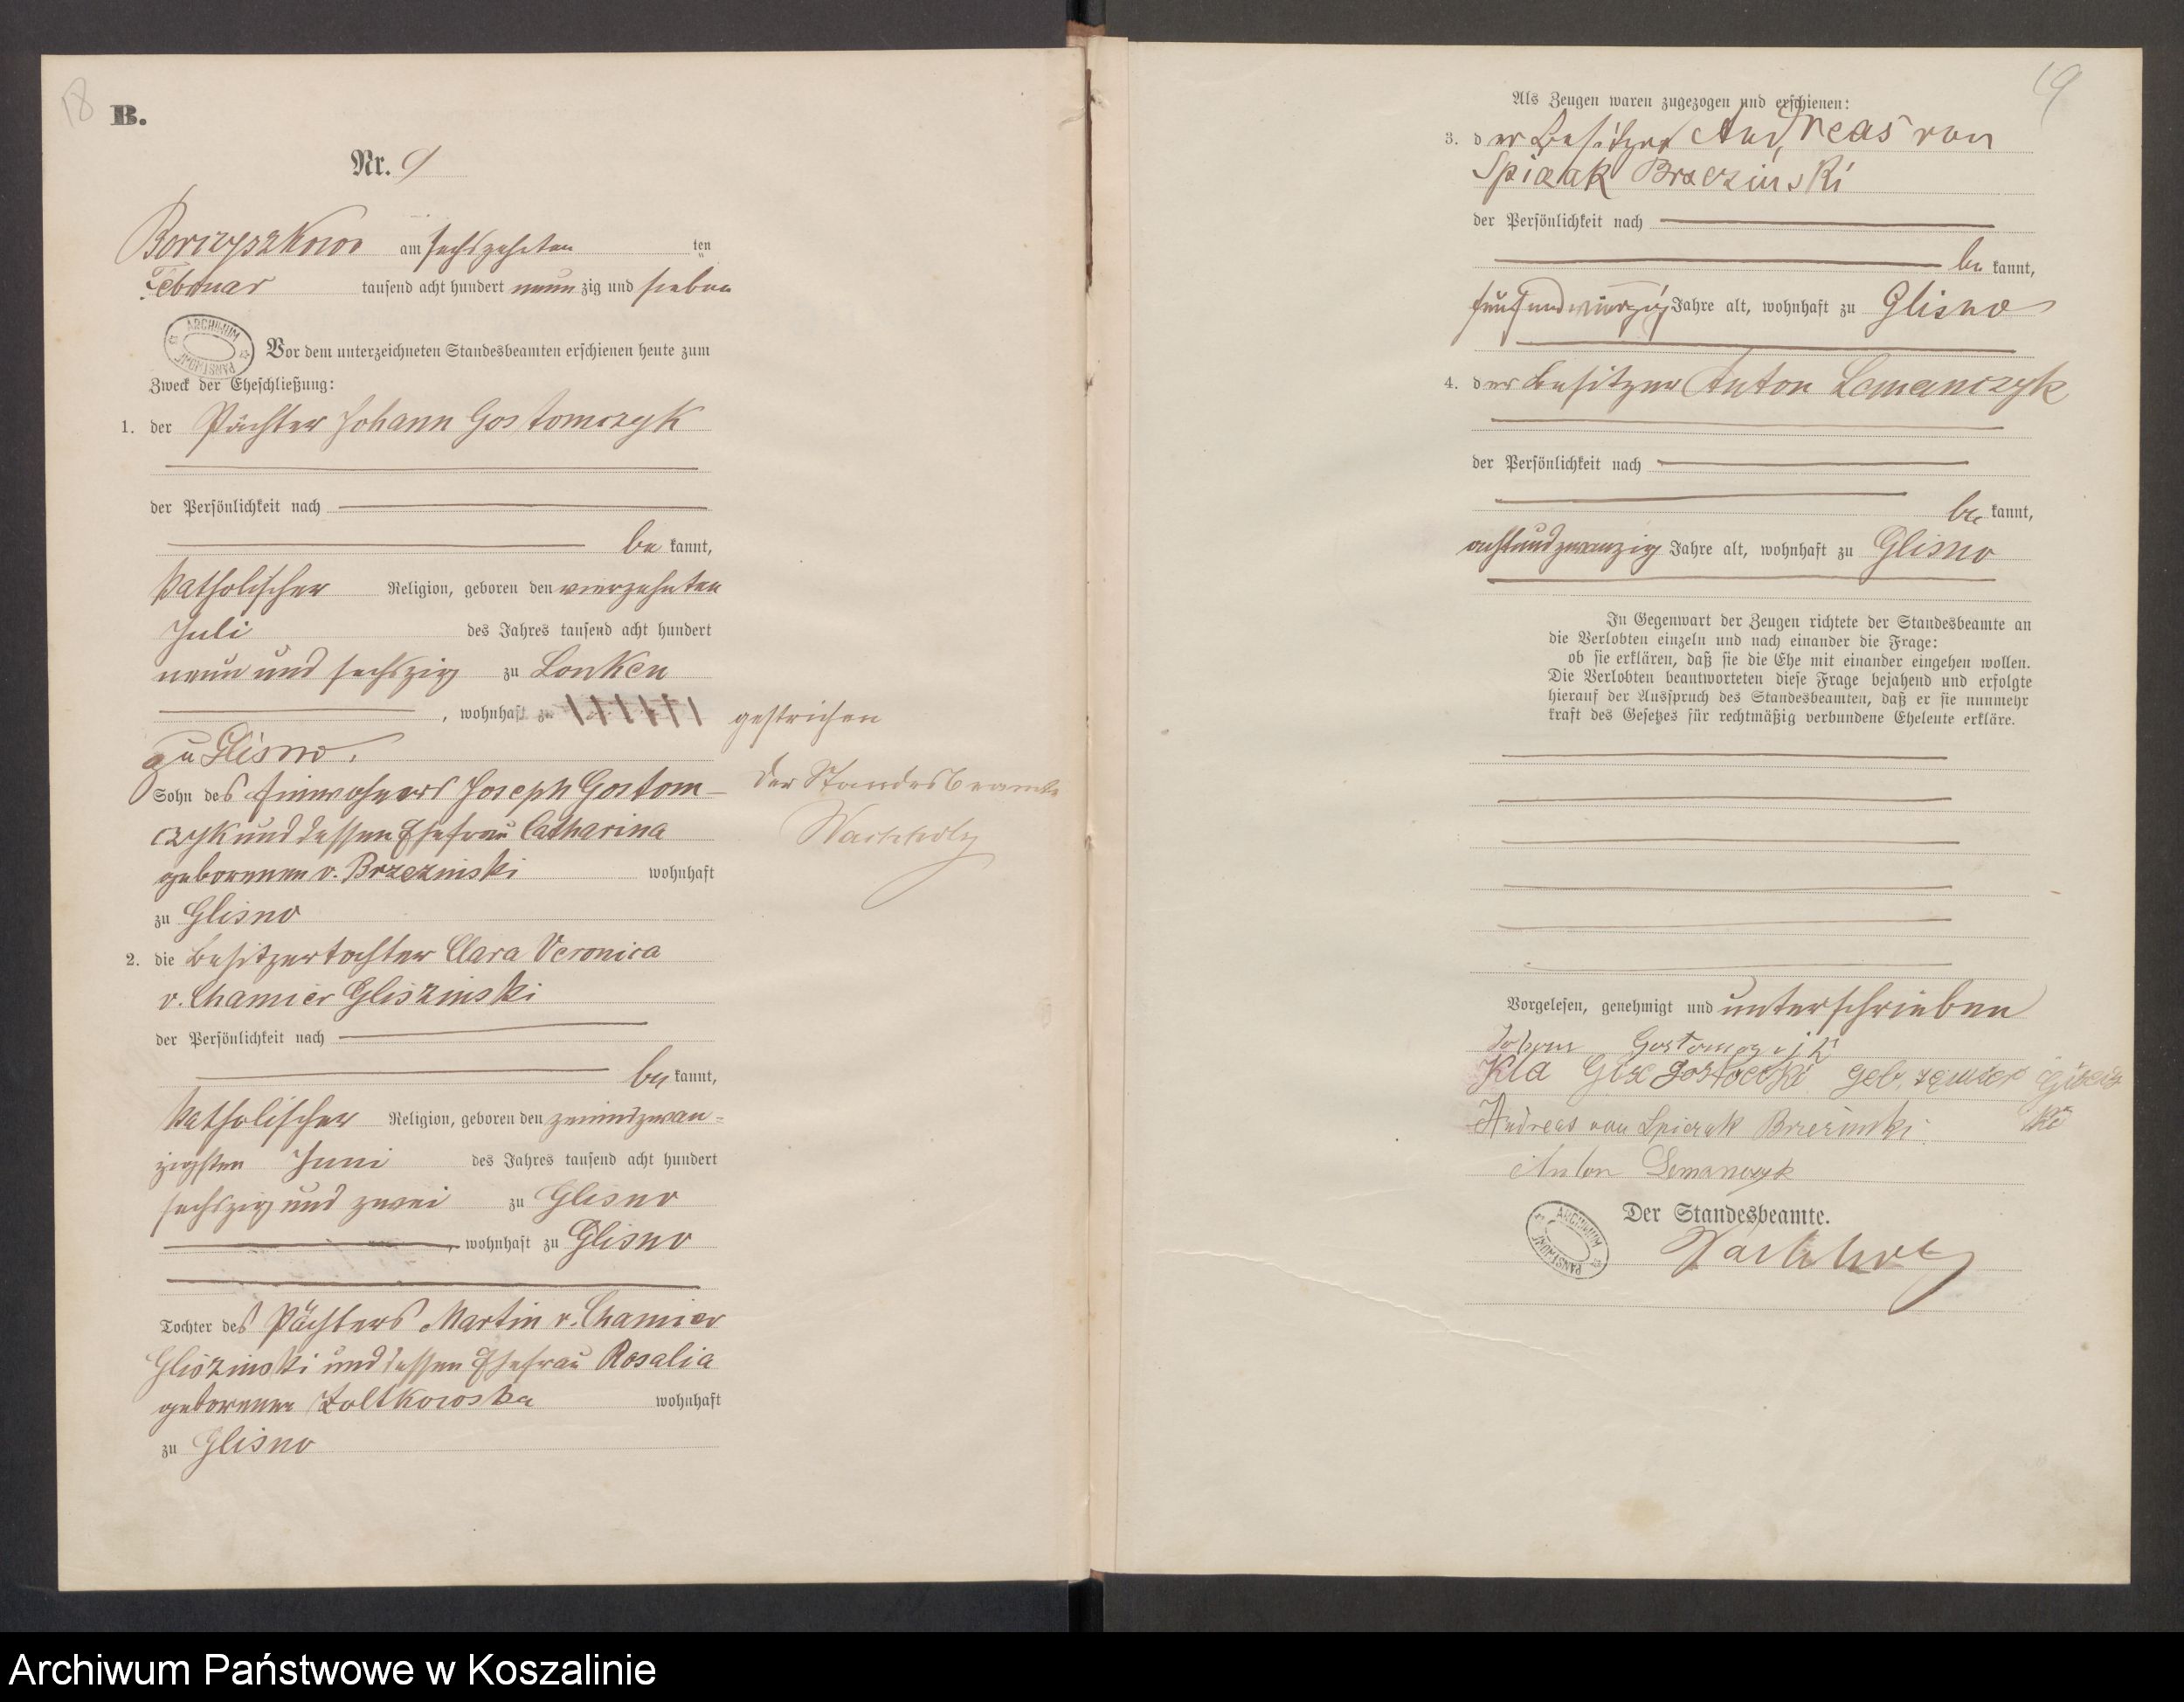 18
B.
Nr. 9
Borzyszkowo am sechszehnten ten
Februar tausend acht hundert neun zig und sieben
ARCHIWUM PAŃSTWOWE
Vor dem unterzeichneten Standesbeamten erschienen heute zum
Zweck der Eheschließung:
1. der Pächter Johann Gostomczyk
der Persönlichkeit nach
be kannt,
katholischer Religion, geboren den vierzehnten
Juli des Jahres tausend acht hundert
neun und sechszig zu Lonken
, wohnhaft zu gestrichen
zu Glisno.
Der Standesbeamte
Sohn des Einwohners Joseph Gostom-
czyk und dessen Ehefrau Catharina
Wachholz
geborenen v. Brzezinski wohnhaft
zu Glisno
2. die Besitzertochter Clara Veronica
v. Chamier Gliszinski
der Persönlichkeit nach
be kannt,
katholischer Religion, geboren den zweiundzwan-
zigsten Juni des Jahres tausend acht hundert
sechszig und zwei zu Glisno
, wohnhaft zu Glisno
Tochter des Pächters Martin v. Chamier
Gliszinski und dessen Ehefrau Rosalia
geborenen Zoltkowska wohnhaft
zu Glisno
19
Als Zeugen waren zugezogen und erschienen:
3. der Besitzer Andreas von
Spiczak Brzezinski
der Persönlichkeit nach
be kannt,
fünf und vierzig Jahre alt, wohnhaft zu Glisno
4. der Besitzer Anton Lemanczyk
der Persönlichkeit nach
be kannt,
achtundzwanzig Jahre alt, wohnhaft zu Glisno
In Gegenwart der Zeugen richtete der Standesbeamte an
die Verlobten einzeln und nach einander die Frage:
ob sie erklären, daß sie die Ehe mit einander eingehen wollen.
Die Verlobten beantworteten diese Frage bejahend und erfolgte
hierauf der Ausspruch des Standesbeamten, daß er sie nunmehr
kraft des Gesetzes für rechtmäßig verbundene Eheleute erkläre.
Vorgelesen, genehmigt und unterschrieben
Johann Gostomczyk
geb.
Andreas von Spiczak Brzezinski
Anton Lemanczyk
Der Standesbeamte.
ARCHIWUM PAŃSTWOWE
Wachholz
Archiwum Państwowe w Koszalinie